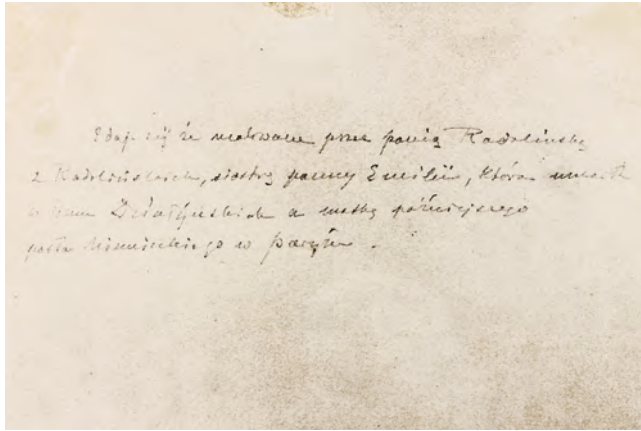 Zdaje się że malowane przez panią Radolińską
z Radolińskich, siostrę panny Emilii, która umarła
w domu Działyńskich a matkę późniejszego
posła niemieckiego w Paryżu.